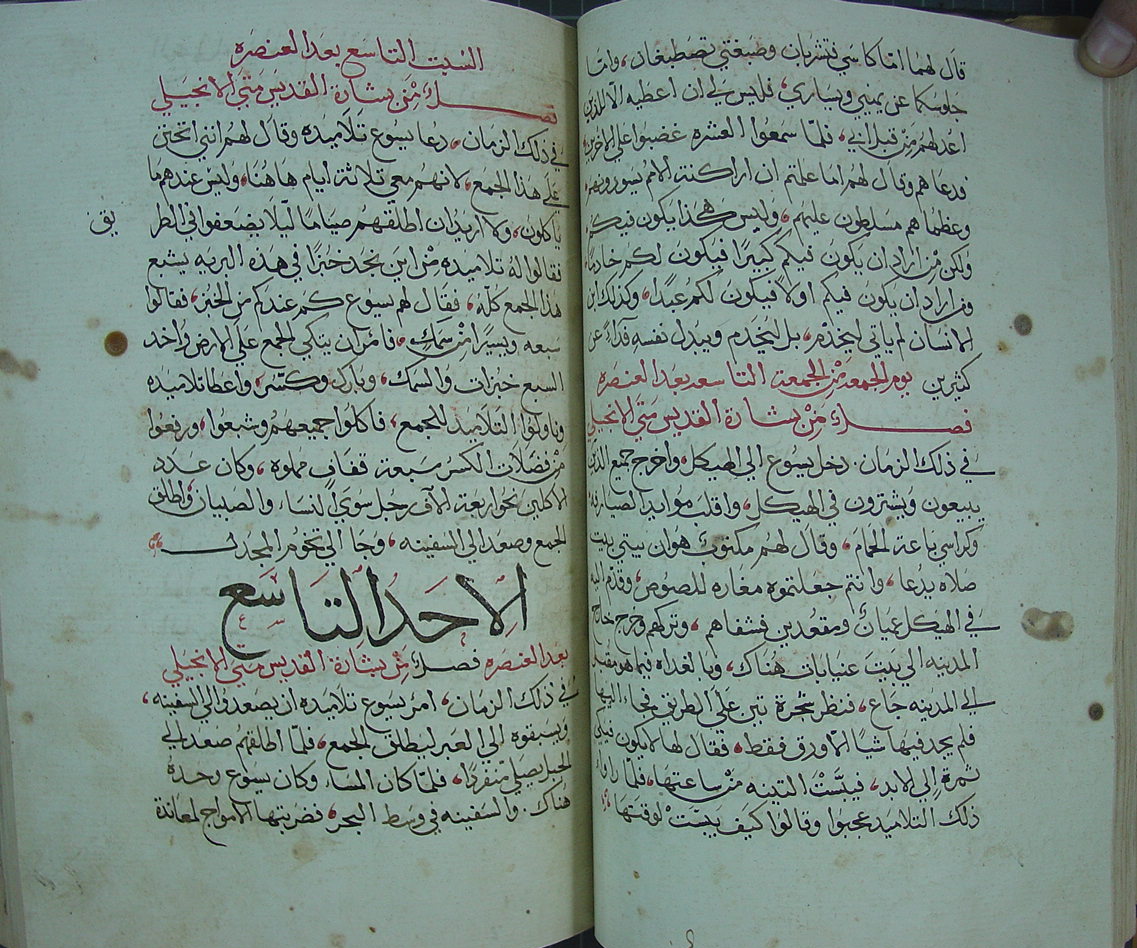 قال لهما اما كاسي فتشربان وصبغتي تصطبغان، واما
جلوسكما عن يميني ويساري، فليس لي ان اعطيه الا للذين
اعد لهم من قبل ابي، فلما سمعوا العشرة غضبوا علي الاخرين
فدعاهم وقال لهم اما علمتم ان اراكنة الامم يسودونهم
وعظماهم مسلطون عليهم، وليس هكذا يكون فيكم
ولكن من اراد ان يكون فيكم كبيرًا فيكون لكم خادمًا
ومن اراد ان يكون فيكم اولاً فيكون لكم عبدًا، وكذلك ابن
الانسان لم ياتي ليخدم، بل ليخدم ويبدل نفسه فدآء عن
كثيرين يوم الجمعه من الجمعة التاسعه بعد العنصره
فصل من بشارة القديس متي الانجيلي
في ذلك الزمان. دخل يسوع الي الهيكل، واخرج جميع الذين
يبيعون ويشترون في الهيكل، واقلب موايد الصيارفه
وكراسي باعة الحمام، وقال لهم مكتوبٌ هو ان بيتي بيت
صلاه يدعا، وانتم جعلتموه مغاره للصوص، وقدم اليه
في الهيكل عميان ومقعدين فشفاهم، وتركهم وخرج خارج
المدينه الي بيت عنيا بات هناك، وبالغداه فيما هو مقبل
الي المدينه جاع، فنظر شجرة تين علي الطريق فجاء اليها
فلم يجد فيها شيًا الا ورق فقط، فقال لها لا يكون فيكي
ثمرة الي الابد، فيبست التينه من ساعتها، فلما راوا
ذلك التلاميد عجبوا وقالوا كيف يبست لوقتها
السبت التاسع بعد العنصره
فصل من بشارة القديس متي الانجيلي
في ذلك الزمان، دعا يسوع تلاميده وقال لهم انني اتحنن
علي هذا الجمع، لانهم معي تلاثة ايام هاهنا، وليس عندهم ما
ياكلون، ولا اريد ان اطلقهم صيامًا ليلا يضعفوا في الطر
يق
فقالوا له تلاميده من اين نجد خبزًا في هذه البريه يشبع
هذا الجمع كله، فقال لهم يسوع كم عندكم من الخبز، فقالوا
سبعه ويسيرًا من سمك، فامر ان يتكي الجمع علي الارض واخد
السبع خبزات والسمك، وبارك وكسر، واعطا تلاميده
وناولوا التلاميد للجمع، فاكلوا جميعهم وشبعوا، ورفعوا
من فضلات الكسر سبعة قفاف مملوه، وكان عدد
الاكلين نحو اربعة الآف رجل سوي النساء والصبيان، واطلق
الجمع وصعد الي السفينه، وجا الي تخوم المجدل
الاحد التاسع
بعد العنصره فصل من بشارة القديس متي الانجيلي
في ذلك الزمان، امر يسوع تلاميده ان يصعدوا الي السفينه،
ويسبقوه الي العبر ليطلق الجمع، فلما اطلقهم صعد الي
الجبل يصلي منفردًا، فلما كان المساء وكان يسوع وحده
هناك. والسفينه في وسط البحر، فضربتها الامواج لمعاندة